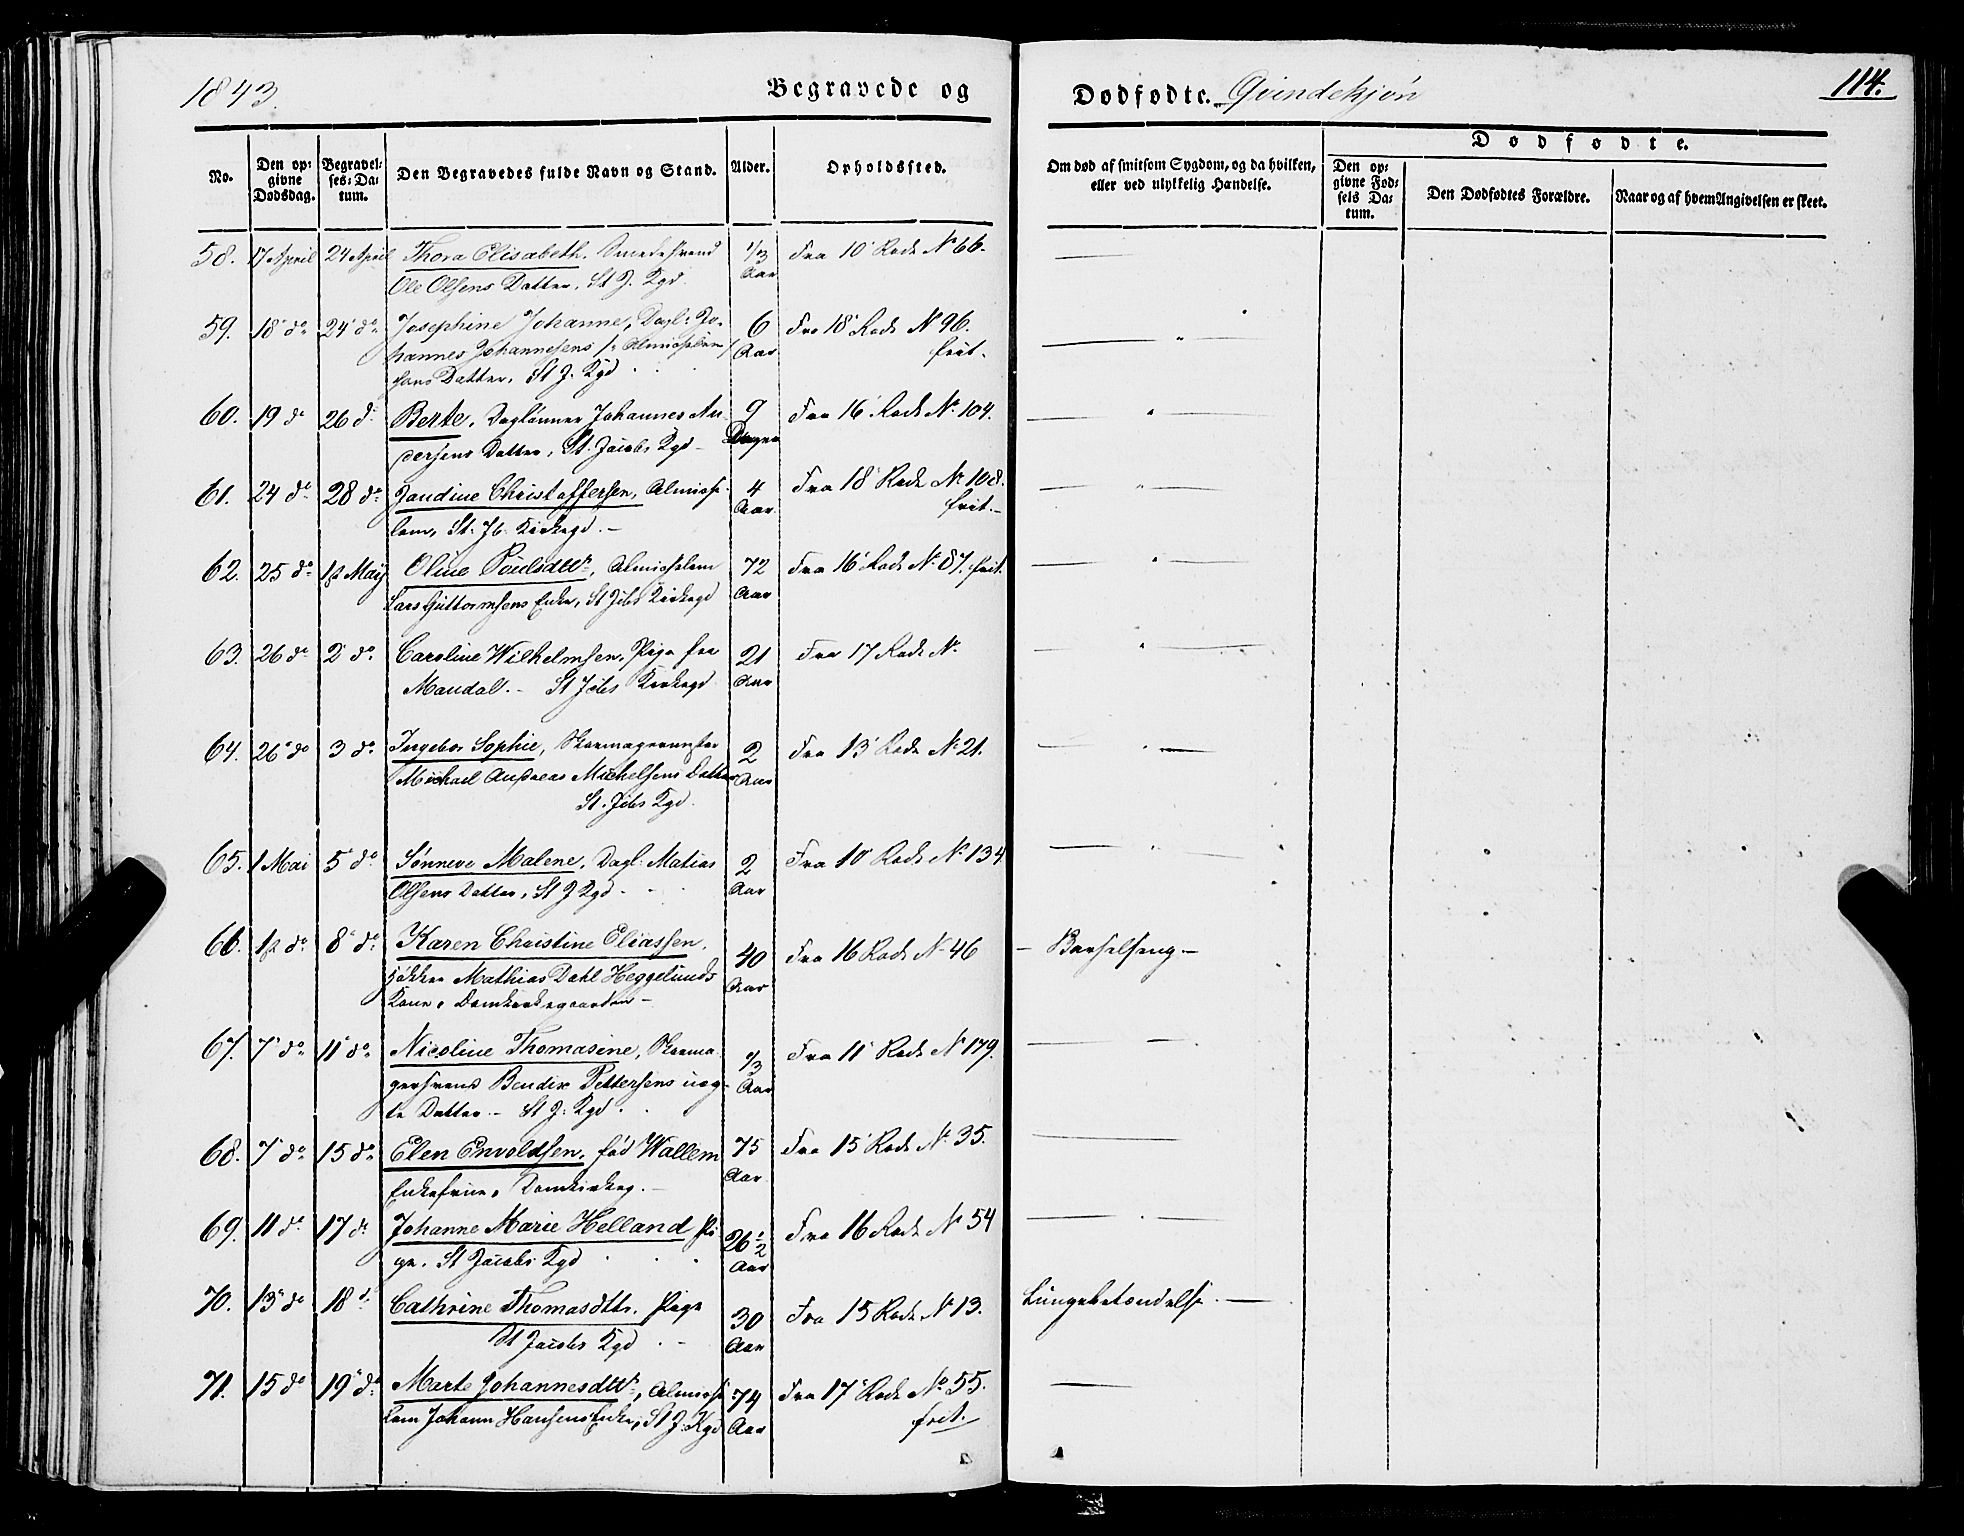 1843.
Begravede og
Dødfødte. Qvindekjøn
114.
No.
Den opgivne Dødsdag.
Begravelses-Datum.
Den Begravedes fulde Navn og Stand.
Alder.
Opholdssted.
Om død af smitsom Sygdom, og da hvilken,
eller ved ulykkelig Hændelse.
Dødfødte.
Den opgivne Fødsels Datum.
Den Dødfødtes Forældre.
Naar og af hvem Angivelsen er skeet.
58. 17 April 24 April Thora Elisabeth, Smedesvend 1/3 Aar Fra 10' Rode No 66.
Ole Olsens Datter, St J. Kgd.
59. 18' do 24' do Josephine Johanne, Dagl: Jo- 6 Aar Fra 18' Rode No 96.
hannes Johannesens /: Almisselem/ frit.
hans Datter, St J. Kgd
60. 19 do 26 do Berte, Daglønner Johannes An- 9 Dage Fra 16' Rode No 104.
dersens Datter, St. Jacobs Kgd –
61. 24 do 28 do Jandine Christoffersen, Almisse- 4 Aar Fra 18' Rode No 108.
lem, St: Jb: Kirkegd. – frit. –
62. 25 do 1ste May Oline Poulsdttr, Almisselem 72 Aar Fra 16' Rode No 87. frit.
Lars Guttormsens Enke, St Jcbs Kirkegd
63. 26 do 2' do Caroline Wilhelmsen, Pige fra 21 Aar Fra 17 Rode No
Mandal. – St Jcbs Kirkegd
64. 26' do 3 do Ingebor Sophie, Skomagermester 2 Aar Fra 13' Rode No 21.
Michael Andreas Michelsens Datter
St. Jcbs Kgd.
65. 1 Mai 5' do Sønneve Malene, Dagl: Matias 2 Aar Fra 10' Rode No 134
Olsens Datter, St J Kgd –
66. 1ste do 8' do Karen Christine Eliassen, 40 Aar Fra 16 Rode No 46 – Barselseng –
Høkker Mathias Dahl Heggelunds
Kone, Domkirkegaarden –
67. 7' do 11' do Nicoline Thomasine, Skoma- 1/3 Aar Fra 11' Rode No 179.
gersvend Bendix Pettersens uæg-
te Datter – St J: Kgd.
68. 7' do 15 do Elen Envoldsen, fød Wallem 75 Aar Fra 15' Rode No 35.
Enkefrue, Domkirkeg. –
69. 11 do 17 do Johanne Marie Helland Pi- 26 1/2 Aar Fra 16 Rode No 54
ge, St Jacobs Kgd
70. 13' do 18 do Cathrine Thomasdttr, Pige 30 Aar Fra 15 Rode No 13. Lungebetændelse. –
St Jacobs Kgd
71. 15 do 19' do Marte Johannesdttr, Almisse- 74 Aar Fra 17' Rode No 55.
lem Johann Hansens Enke, St J: Kgd frit.